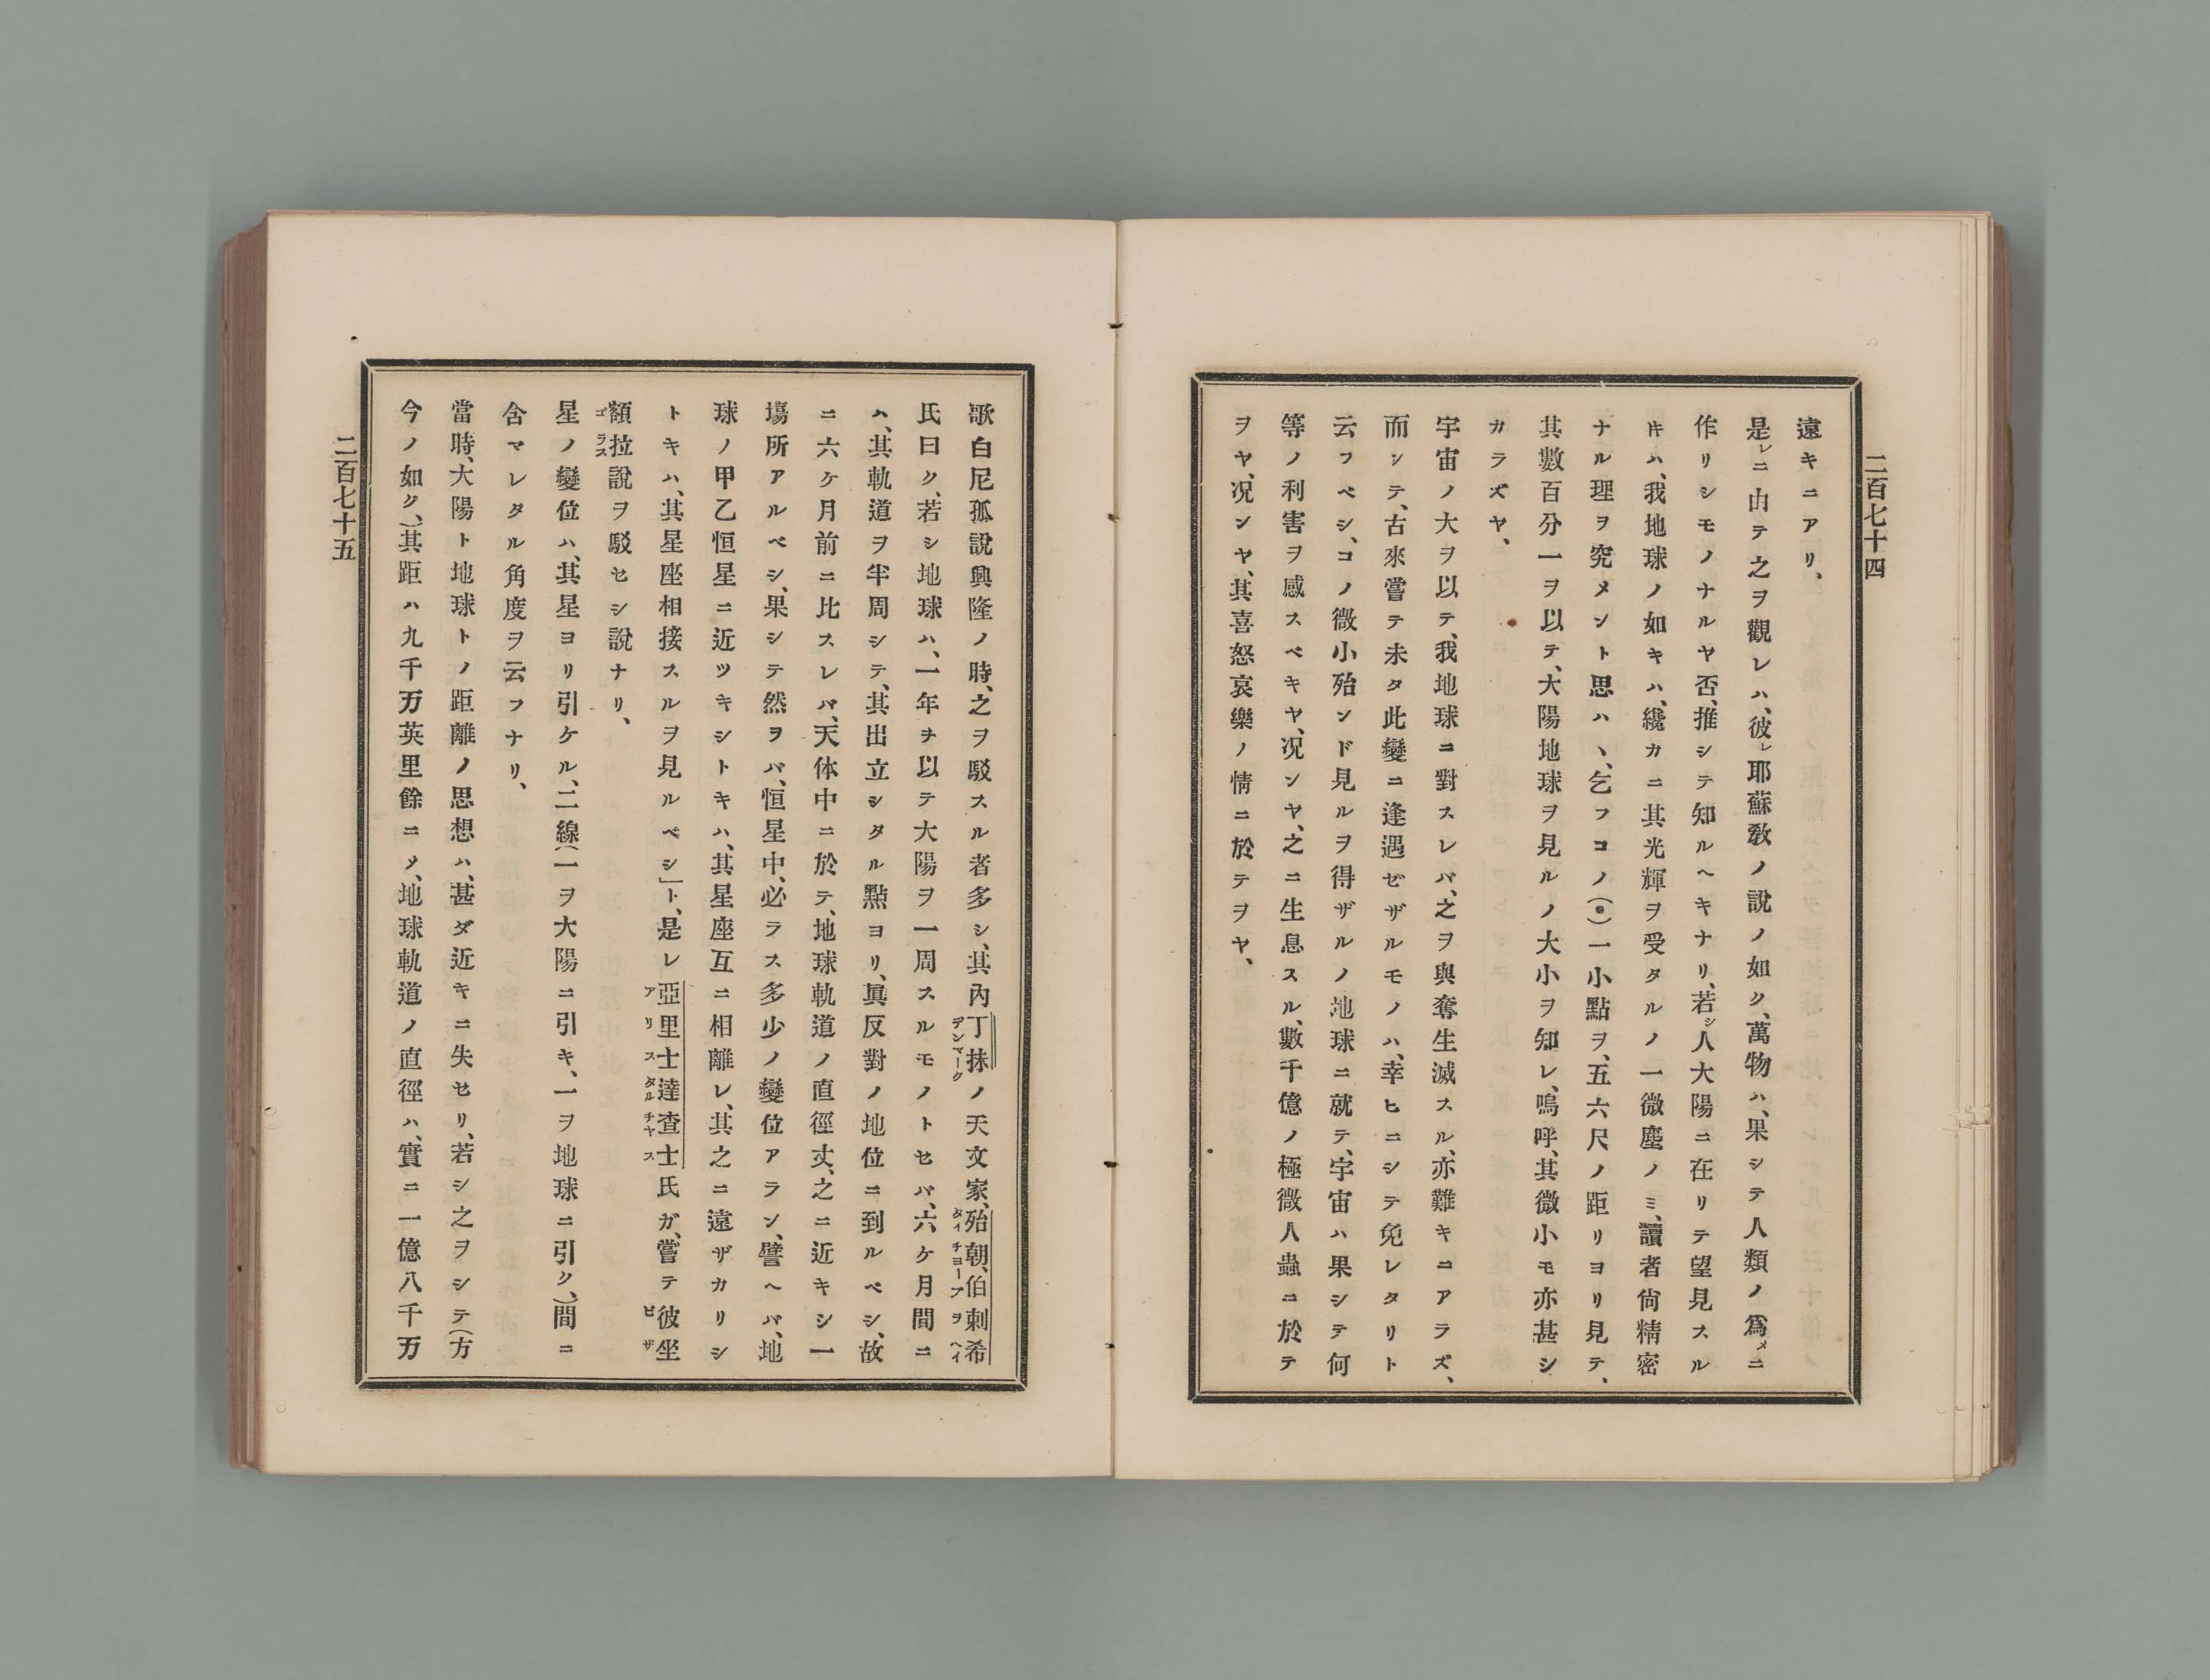 二百七十四
遠キニアリ、
是レニ由テ之ヲ觀レハ、彼レ耶蘇敎ノ說ノ如ク、萬物ハ、果シテ人類ノ爲メニ
作リシモノナルヤ否、推シテ知ルヘキナリ、若シ人大陽ニ在リテ望見スル
𪜈ハ、我地球ノ如キハ、纔カニ其光輝ヲ受タルノ一微塵ノミ、讀者尙精密
ナル理ヲ究メント思ハヽ、乞フコノ(●)一小點ヲ、五六尺ノ距リヨリ見テ、
其數百分一ヲ以テ、大陽地球ヲ見ルノ大小ヲ知レ、嗚呼、其微小モ亦甚シ
カラズヤ、
宇宙ノ大ヲ以テ、我地球ニ對スレバ、之ヲ與奪生滅スル、亦難キニアラズ、
而シテ、古來嘗テ未タ此變ニ逢遇ゼザルモノハ、幸ヒニシテ免レタリト
云フベシ、コノ微小殆ンド見ルヲ得ザルノ地球ニ就テ、宇宙ハ果シテ何
等ノ利害ヲ感スベキヤ、况ンヤ、之ニ生息スル、數千億ノ極微人蟲ニ於テ
ヲヤ、况ンヤ、其喜怒哀樂ノ情ニ於テヲヤ、
歌白尼孤說興隆ノ時、之ヲ駁スル者多シ、其內丁抹ノ天文家、殆朝、伯剌希
デンマーク タイチヨーブヲヘイ
氏曰ク、若シ地球ハ、一年ヲ以テ大陽ヲ一周スルモノトセバ、六ケ月間ニ
ハ、其軌道ヲ半周シテ、其出立シタル點ヨリ、眞反對ノ地位ニ到ルベシ、故
ニ六ケ月前ニ比スレバ、天体中ニ於テ、地球軌道ノ直徑丈、之ニ近キシ一
塲所アルベシ、果シテ然ヲバ、恒星中、必ラス多少ノ變位アラン、譬ヘバ、地
球ノ甲乙恒星ニ近ツキシトキハ、其星座互ニ相離レ、其之ニ遠ザカリシ
トキハ、其星座相接スルヲ見ルベシ」ト、是レ亞里士達查士氏ガ、嘗テ彼坐
アリスタルチヤス ピザ
額拉說ヲ駁セシ說ナリ、
ゴラス
星ノ變位ハ、其星ヨリ引ケル、二線(一ヲ大陽ニ引キ、一ヲ地球ニ引ク、)間ニ
含マレタル角度ヲ云フナリ、
當時、大陽ト地球トノ距離ノ思想ハ、甚ダ近キニ失セリ、若シ之ヲシテ(方
今ノ如ク、)其距ハ九千万英里餘ニメ、地球軌道ノ直徑ハ、實ニ一億八千万
二百七十五